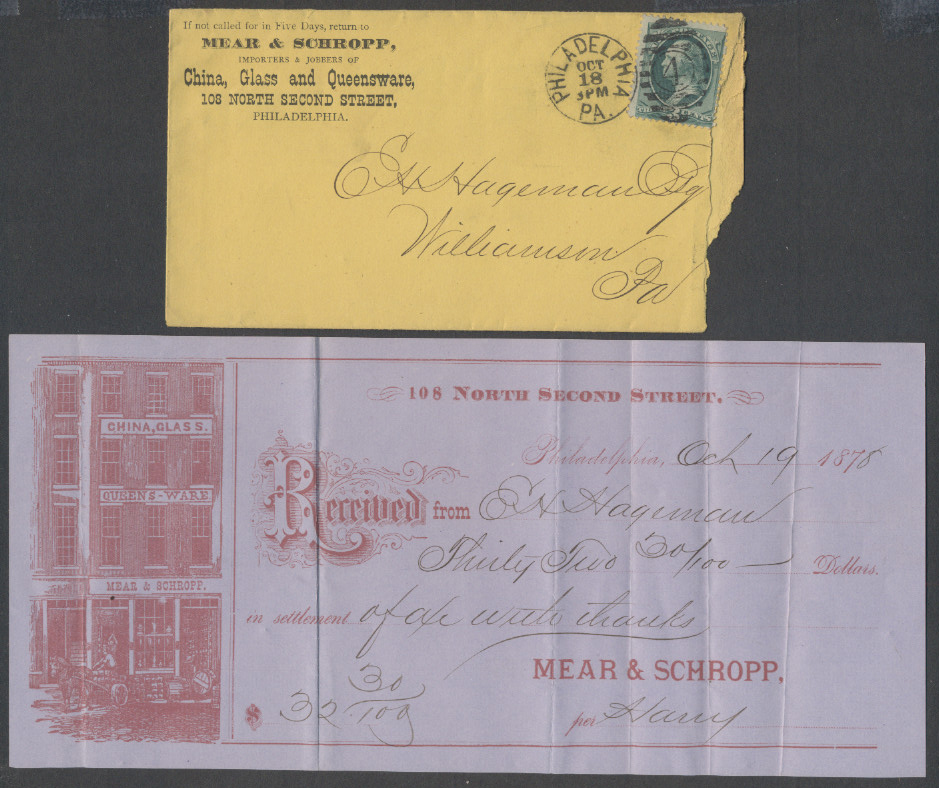 If not called for in Five Days, return to
MEAR & SCHROPP,
IMPORTERS & JOBBERS OF
China, Glass and Queensware,
108 NORTH SECOND STREET,
PHILADELPHIA.
PHILADELPHIA
OCT
18
3PM
PA.
E H Hageman Esq
Williamson
Pa
108 NORTH SECOND STREET.
Philadelphia, Oct 19 1878
Received from E H Hageman
Thirty Two 30/100 Dollars.
in settlement of a/c with thanks
MEAR & SCHROPP,
$ 32 30/100
per Harry
CHINA, GLASS.
QUEENS-WARE
MEAR & SCHROPP.